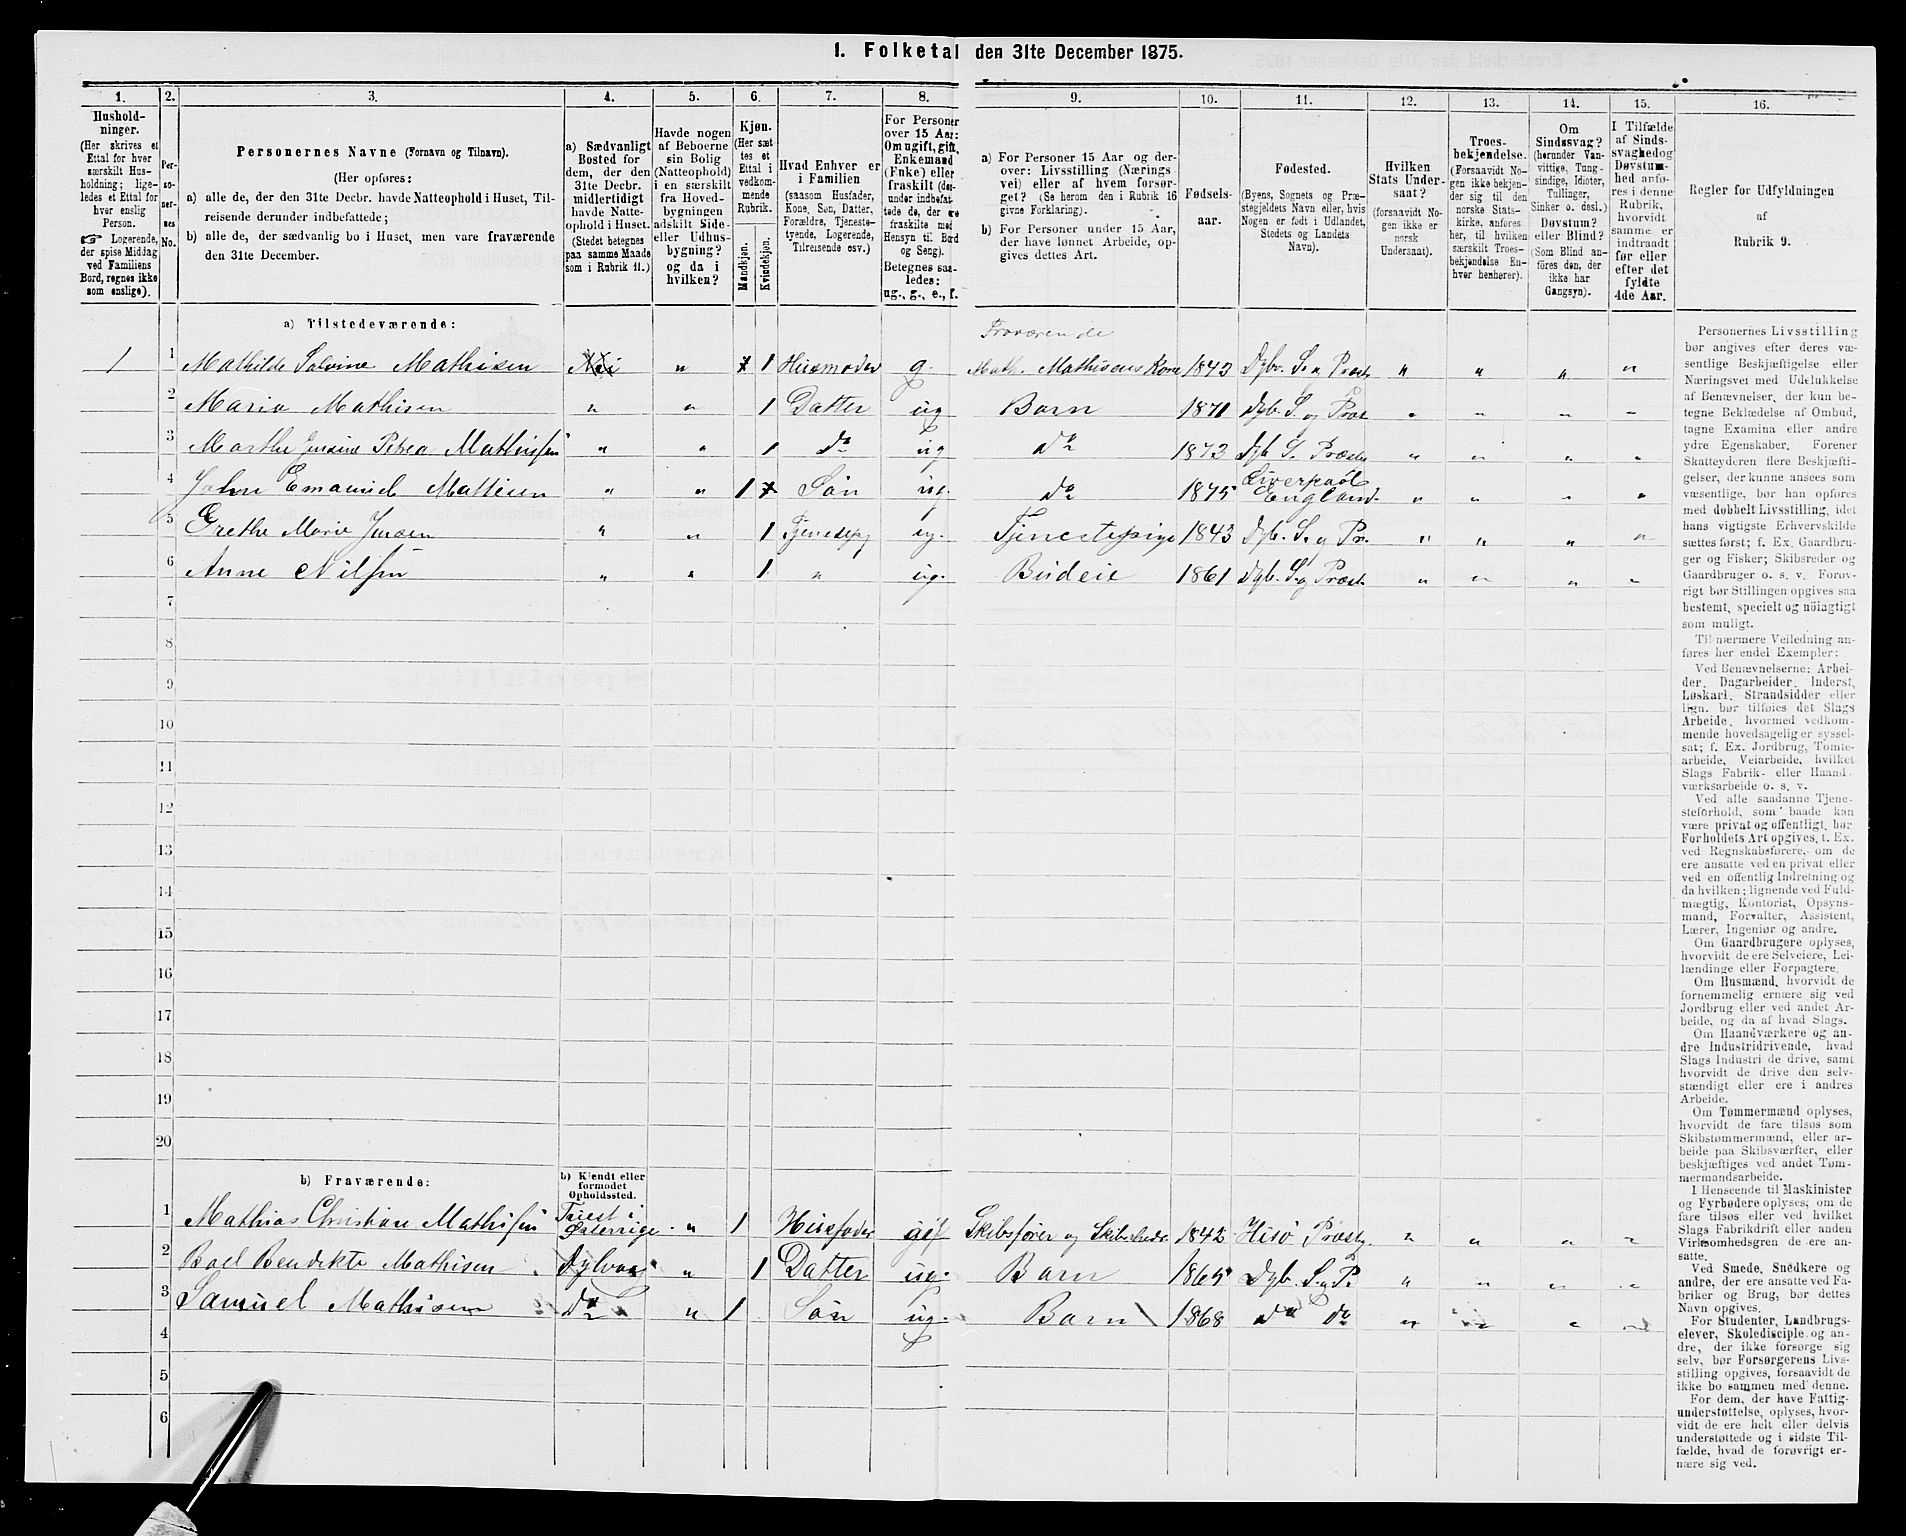 1. Folketal den 31te December 1875.
1. 2. 3. 4. 5. 6. 7. 8. 9. 10. 11. 12. 13. 14. 15. 16.
Hushold-
ninger.
(Her skrives et
Ettal for hver
særskilt Hus-
holdning; lige-
ledes et Ettal for
hver enslig
Person.
☞ Logerende,
der spise Middag
ved Familiens
Bord, regnes ikke
som enslige).
Per-
so-
ner-
nes
No.
Personernes Navne (Fornavn og Tilnavn).
(Her opføres:
a) alle de, der den 31te Decbr. havde Natteophold i Huset, Til-
reisende derunder indbefattede;
b) alle de, der sædvanlig bo i Huset, men vare fraværende
den 31te December.
a) Sædvanligt
Bosted for
dem, der den
31te Decbr.
midlertidigt
havde Natte-
ophold i Huset.
(Stedet betegnes
paa samme Maade
som i Rubrik 11.)
Havde nogen
af Beboerne
sin Bolig
(Natteophold)
i en særskilt
fra Hoved-
bygningen
adskilt Side-
eller Udhus-
bygning?
og da i
hvilken?
Kjøn.
(Her sæt-
tes et
Ettal i
vedkom-
mende
Rubrik.
Mandkjøn.
Kvindekjøn.
Hvad Enhver er
i Familien
(saasom Husfader,
Kone, Søn, Datter,
Forældre, Tjeneste-
tyende, Logerende,
Tilreisende osv.)
For Personer
over 15 Aar:
Om ugift, gift,
Enkemand
(Enke) eller
fraskilt (der-
under indbefat-
tede de, der ere
fraskilte med
Hensyn til Bord
og Seng).
Betegnes saa-
ledes:
ug., g., e., f.
a) For Personer 15 Aar og der-
over: Livsstilling (Nærings-
vei) eller af hvem forsør-
get? (Se herom den i Rubrik 16
givne Forklaring).
b) For Personer under 15 Aar,
der have lønnet Arbeide, op-
gives dettes Art.
Fødsels-
aar.
Fødested.
(Byens, Sognets og Præ-
stegjeldets Navn eller, hvis
Nogen er født i Udlandet,
Stedets og Landets
Navn).
Hvilken
Stats Under-
saat?
(forsaavidt No-
gen ikke er
norsk
Undersaat).
Troes-
bekjendelse.
(Forsaavidt No-
gen ikke bekjen-
der sig til den
norske Stats-
kirke, anføres
her, til hvilken
særskilt Troes-
bekjendelse En-
hver henhører).
Om
Sindssvag?
(herunder Van-
vittige, Tung-
sindige, Idioter,
Tullinger,
Sinker o. desl.)
Døvstum?
eller Blind?
(Som Blind an-
føres den, der
ikke har
Gangsyn).
I Tilfælde
af Sinds-
svaghed og
Døvstum-
hed anfø-
res i denne
Rubrik,
hvorvidt
samme er
indtraadt
før eller
efter det
fyldte
4de Aar.
Regler for Udfyldningen
af
Rubrik 9.
a) Tilstedeværende:
Fraværende
1 1 Mathilde Salvine Mathisen „ 1 Husmoder g. Math. Mathisens Kone 1843 Dyb. S. og Præst. „ „ „ „
2 Maria Mathisen „ „ 1 Datter ug Barn 1871 Dyb. S. og Præst „ „ „ „
3 Marthe Jensine Petrea Mathisen „ „ 1 do ug do 1873 Dyb S. Præst. „ „ „ „
4 John Emanuel Mathisen „ „ 1 Søn ug. do 1875 Liverpool England. „ „ „ „
5 Grethe Marie Jensen „ „ 1 Tjenestepg ug. Tjenestepige 1843 Dyb. S. og Pr. „ „ „ „
6 Anne Nilsen „ „ 1 „ ug. Budeie 1861 Dyb. S. og Præst. „ „ „ „
7
8
9
10
11
12
13
14
15
16
17
18
19
20
b) Fraværende:
b) Kjendt eller
formodet
Opholdssted.
1 Mathias Christian Mathisen Triest i Østerrige. „ 1 Husfader gif Skibsfører og Skibsreder 1842 Hisø Præstg. „ „ „ „
2 Boel Bendikte Mathisen Dybvaag „ 1 Datter ug. Barn 1865 Dyb. S. og P. „ „ „ „
3 Samuel Mathisen do „ 1 Søn ug. Barn 1868 do do „ „ „ „
4
5
6
Personernes Livsstilling
bør angives efter deres væ-
sentlige Beskjæftigelse eller
Næringsvei med Udelukkelse
af Benævnelser, der kun be-
tegne Beklædelse af Ombud,
tagne Examina eller andre
ydre Egenskaber. Forener
Skatteyderen flere Beskjæfti-
gelser, der kunne ansees som
væsentlige, bør han opføres
med dobbelt Livsstilling, idet
hans vigtigste Erhvervskilde
sættes først; f. Ex. Gaardbru-
ger og Fisker; Skibsreder og
Gaardbruger o. s. v. Forøv-
rigt bør Stillingen opgives saa
bestemt, specielt og nöiagtigt
som muligt.
Til nærmere Veiledning an-
føres her endel Exempler:
Ved Benævnelserne: Arbei-
der, Dagarbeider, Inderst,
Løskarl, Strandsidder eller
lign. bør tilføies det Slags
Arbeide, hvormed vedkom-
mende hovedsagelig er syssel-
sat; f. Ex. Jordbrug, Tomte-
arbeide, Veiarbeide, hvilket
Slags Fabrik- eller Haand-
værksarbeide o. s. v.
Ved alle saadanne Tjene-
steforhold, som baade kan
være privat og offentligt, bør
Forholdets Art opgives, t. Ex.
ved Regnskabsførere, om de
ere ansatte ved en privat eller
ved en offentlig Indretning og
da hvilken; lignende ved Fuld-
mægtig, Kontorist, Opsyns-
mand, Forvalter, Assistent,
Lærer, Ingeniør og andre.
Om Gaardbrugere oplyses,
hvorvidt de ere Selveiere, Lei-
lændinge eller Forpagtere.
Om Husmænd, hvorvidt de
fornemmelig ernære sig ved
Jordbrug eller ved andet Ar-
beide, og da af hvad Slags.
Om Haandværkere og an-
dre Industridrivende, hvad
Slags Industri de drive, samt
hvorvidt de drive den selv-
stændigt eller ere i andres
Arbeide.
Om Tømmermænd oplyses,
hvorvidt de fare tilsøs som
Skibstømmermænd, eller ar-
beide paa Skibsværfter, eller
beskjæftiges ved andet Tøm-
mermandsarbeide.
I Henseende til Maskinister
og Fyrbødere oplyses, om de
fare tilsøs eller ved hvilket
Slags Fabrikdrift eller anden
Virksomhedsgren de ere an-
satte.
Ved Smede, Snedkere og
andre, der ere ansatte ved Fa-
briker og Brug, bør dettes
Navn opgives.
For Studenter, Landbrugs-
elever, Skoledisciple og an-
dre, der ikke forsørge sig
selv, bør Forsørgerens Livs-
stilling opgives, forsaavidt de
ikke bo sammen med denne.
For dem, der have Fattig-
understøttelse, oplyses, hvor-
vidt de ere helt eller delvis
understøttede og i sidste Til-
fælde, hvad de forøvrigt er-
nære sig ved.